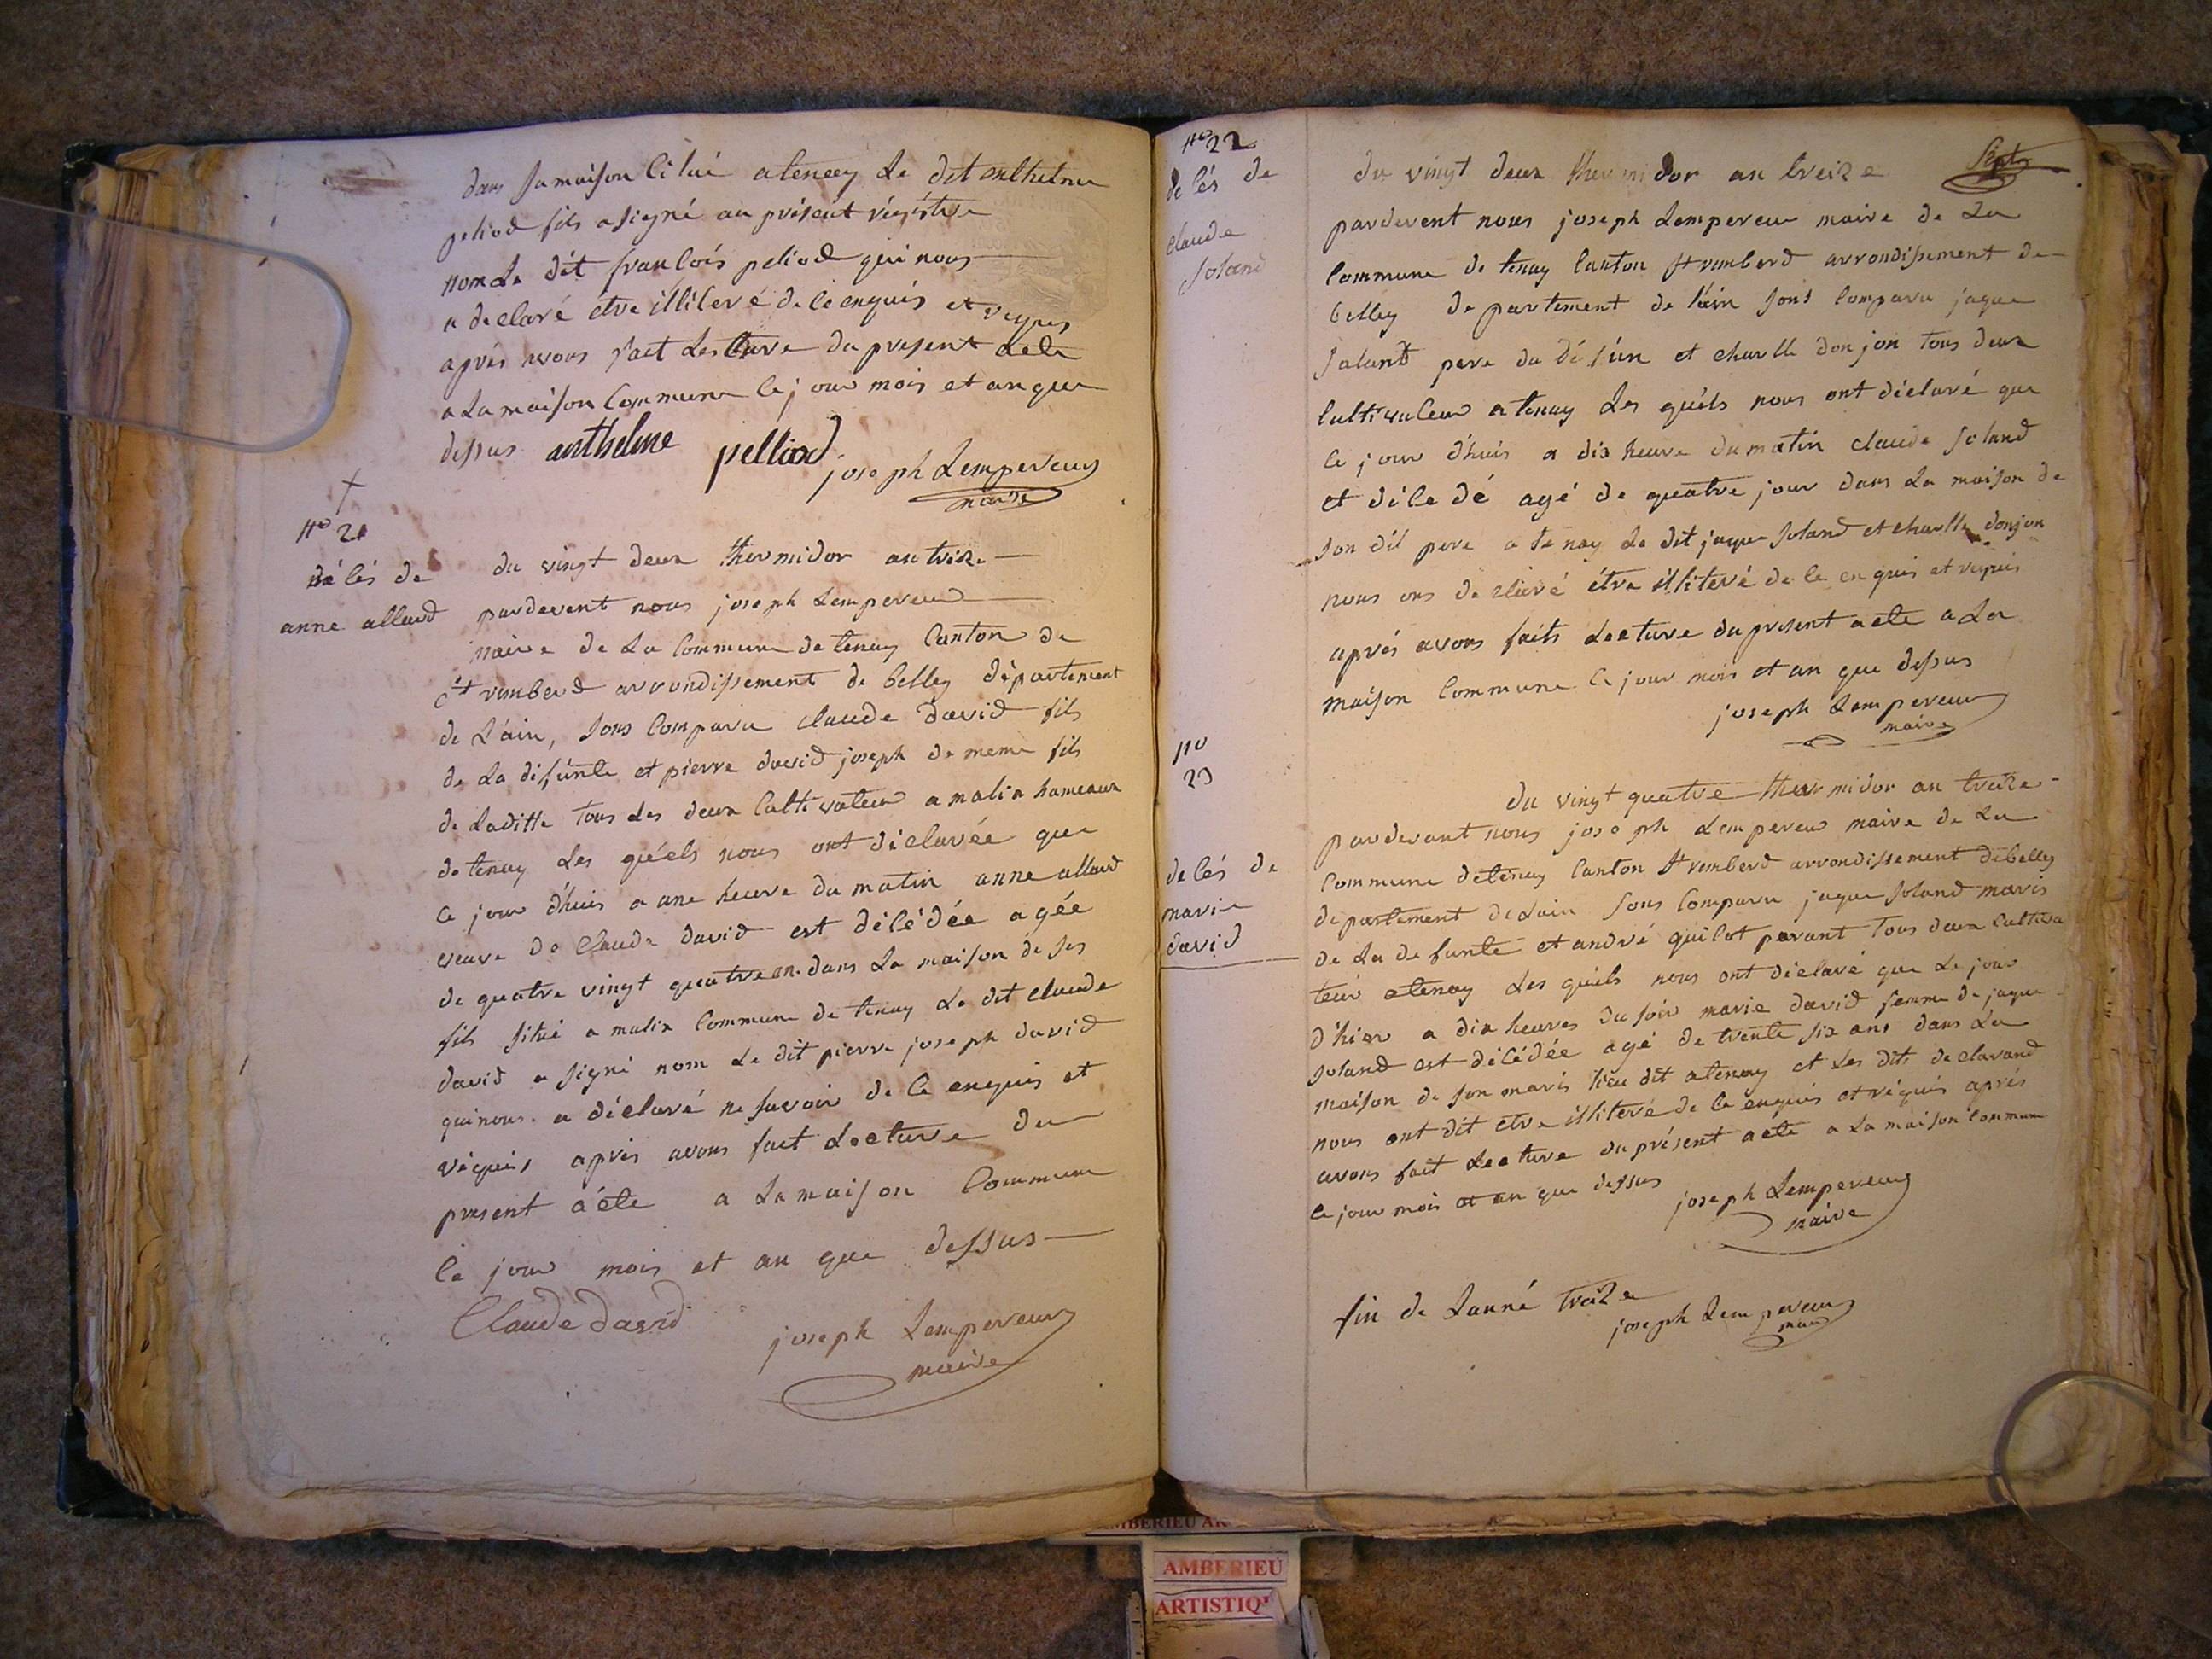 dans sa maison citué a tenay le dit anthelme
peliod fils a signé au présent régistre
nom le dit francois peliod qui nous
a declaré etre illiteré de ce enquis et requis
aprés avons fait lecture du present acte
a la maison commune le jour mois et an que
dessus anthelme pelliod
joseph Lempereur
maire
n° 21
décés de
anne allard
du vingt deux thermidor an treize
pardevent nous joseph Lempereur
maire de la commune de tenay canton de
st remberd arrondissement de belley département
de l'ain, sons comparu claude david fils
de la difunte et pierre david joseph de meme fils
de laditte tous les deux cultivateur a malix hameaux
de tenay les quéels nous ont diclarée que
ce jour d'huis a une heure du matin anne allard
veuve de Claude david est délédée agée
de quatre vingt quatre an dans la maison de ses
fils situé a malix commune de tenay le dit claude
david a signé nom le dit pierre joseph david
qui nous a déclaré ne savoir de ce enquis et
réquis aprés avons fait lecture du
present aéte a la maison commune
le jour mois et an que dessus
Claude david
joseph Lempereur
maire
n° 22
décés de
claude
soland
du vingt deux thermidor an treize
pardevent nous joseph Lempereur maire de la
commune de tenay canton st remberd arrondissement de
belley departement de l'ain sont comparu jaque
soland pere du défun et charlle donjon tous deux
cultivateur a tenay les quéels nous ont déclaré que
ce jour d'huis a dix heure du matin claude soland
et décedé agé de quatre jour dans la maison de
son dit pere a tenay le dit jaque soland et charlle donjon
nous ons declaré étre illiteré de ce enquis et requis
aprés avons faits lecture du present acte a la
maison commune le jour mois et an que dessus
joseph Lempereur
maire
n°
23
decés de
marie
david
du vingt quatre thermidor an treize
pardevant nous joseph Lempereur maire de la
commune de tenay canton st remberd arrondissement de belley
departement de l'ain sons comparu jaque soland maris
de la defunte et andré quilot parant tous deux cultiva
teur a tenay les quéels nous ont déclaré que le jour
d'hier a dix heures du soir marie david femme de jaque
soland est décédée agé de trente six ans dans la
maison de son maris lieu dit a tenay et les dits declarand
nous ont dit etre illiteré de ce enquis et réquis aprés
avons fait lecture du présent acte a la maison commune
ce jour mois et an que dessus
joseph Lempereur
maire
fin de l'anné treize
joseph Lempereur
maire
AMBERIEU
AMBERIEU
ARTISTIQ